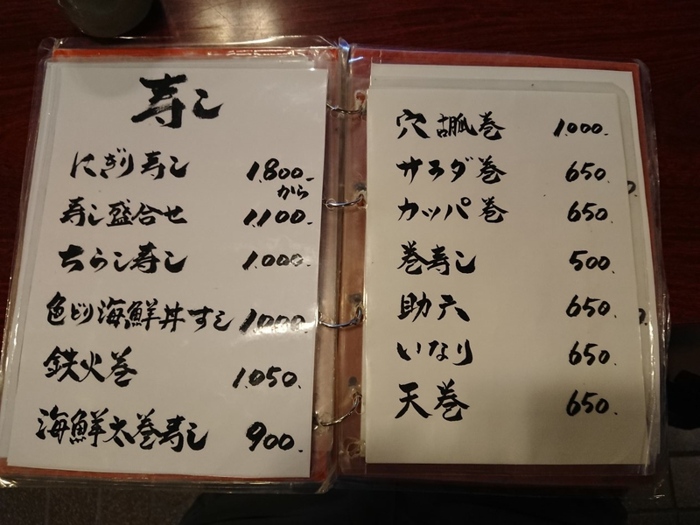 寿し
にぎり寿し 1.800.
から
寿し盛合せ 1.100.
ちらし寿し 1.000.
色どり海鮮丼すし 1.000.
鉄火巻 1.050.
海鮮太巻寿し 900.
穴胡瓜巻 1.000.
サラダ巻 650.
カッパ巻 650.
巻寿し 500.
助六 650.
いなり 650.
天巻 650.